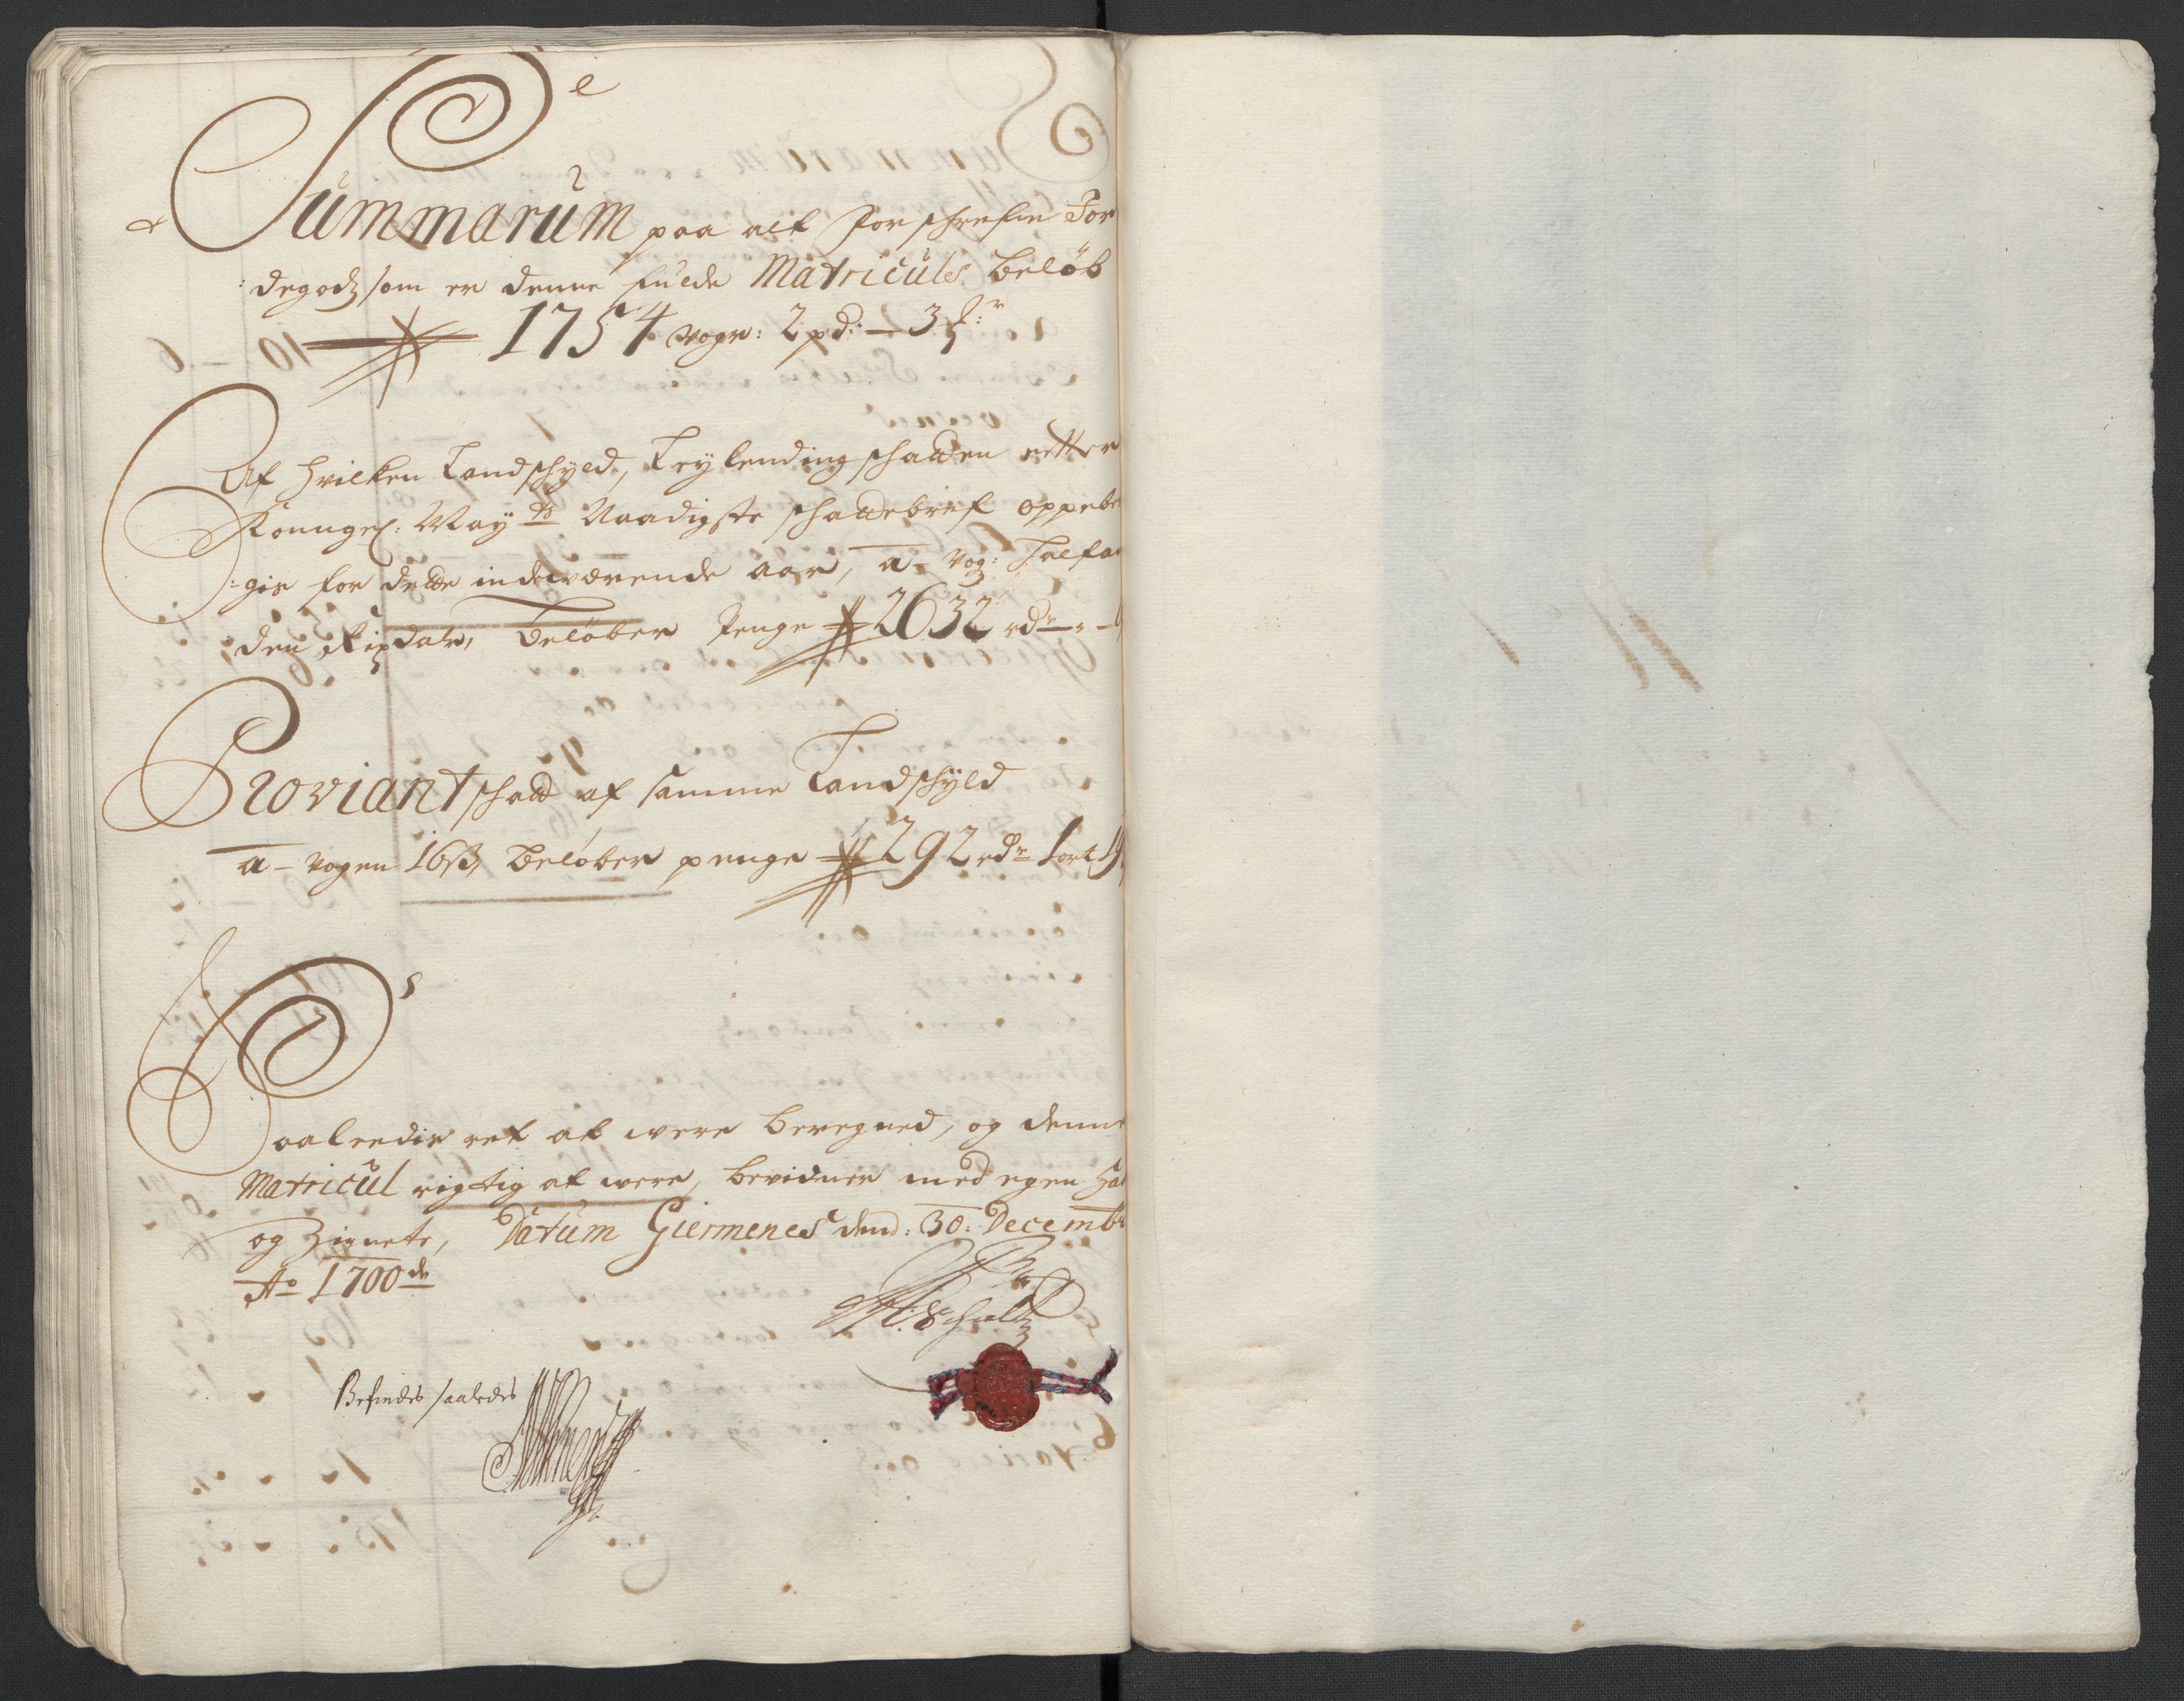 Summarum paa alt forschrefne Jor
degodz som er denne fulde Matriculs beløb
1754 voger: 2 pd: — 3
Af hvilken Landschyld, Leylending schatten efter
Konngl: May:ts Naadigste schattebref oppebe
:gis for dette indeværende aar, a vog: halfan
den Rixdalr, beløber Penge 2632 rdr
Proviant schatt af samme Landschyld
a – vogen 16 ß, beløber penge 292 rdr 1 ort
Saaleedis ret at were beregned, og denne
Matricul rigtig at were, bevidner med egen Ha
og Zignete, Datum Giermenes dend: 30: Decemb
Ao 1700de
Schultz
Befindes saaledes